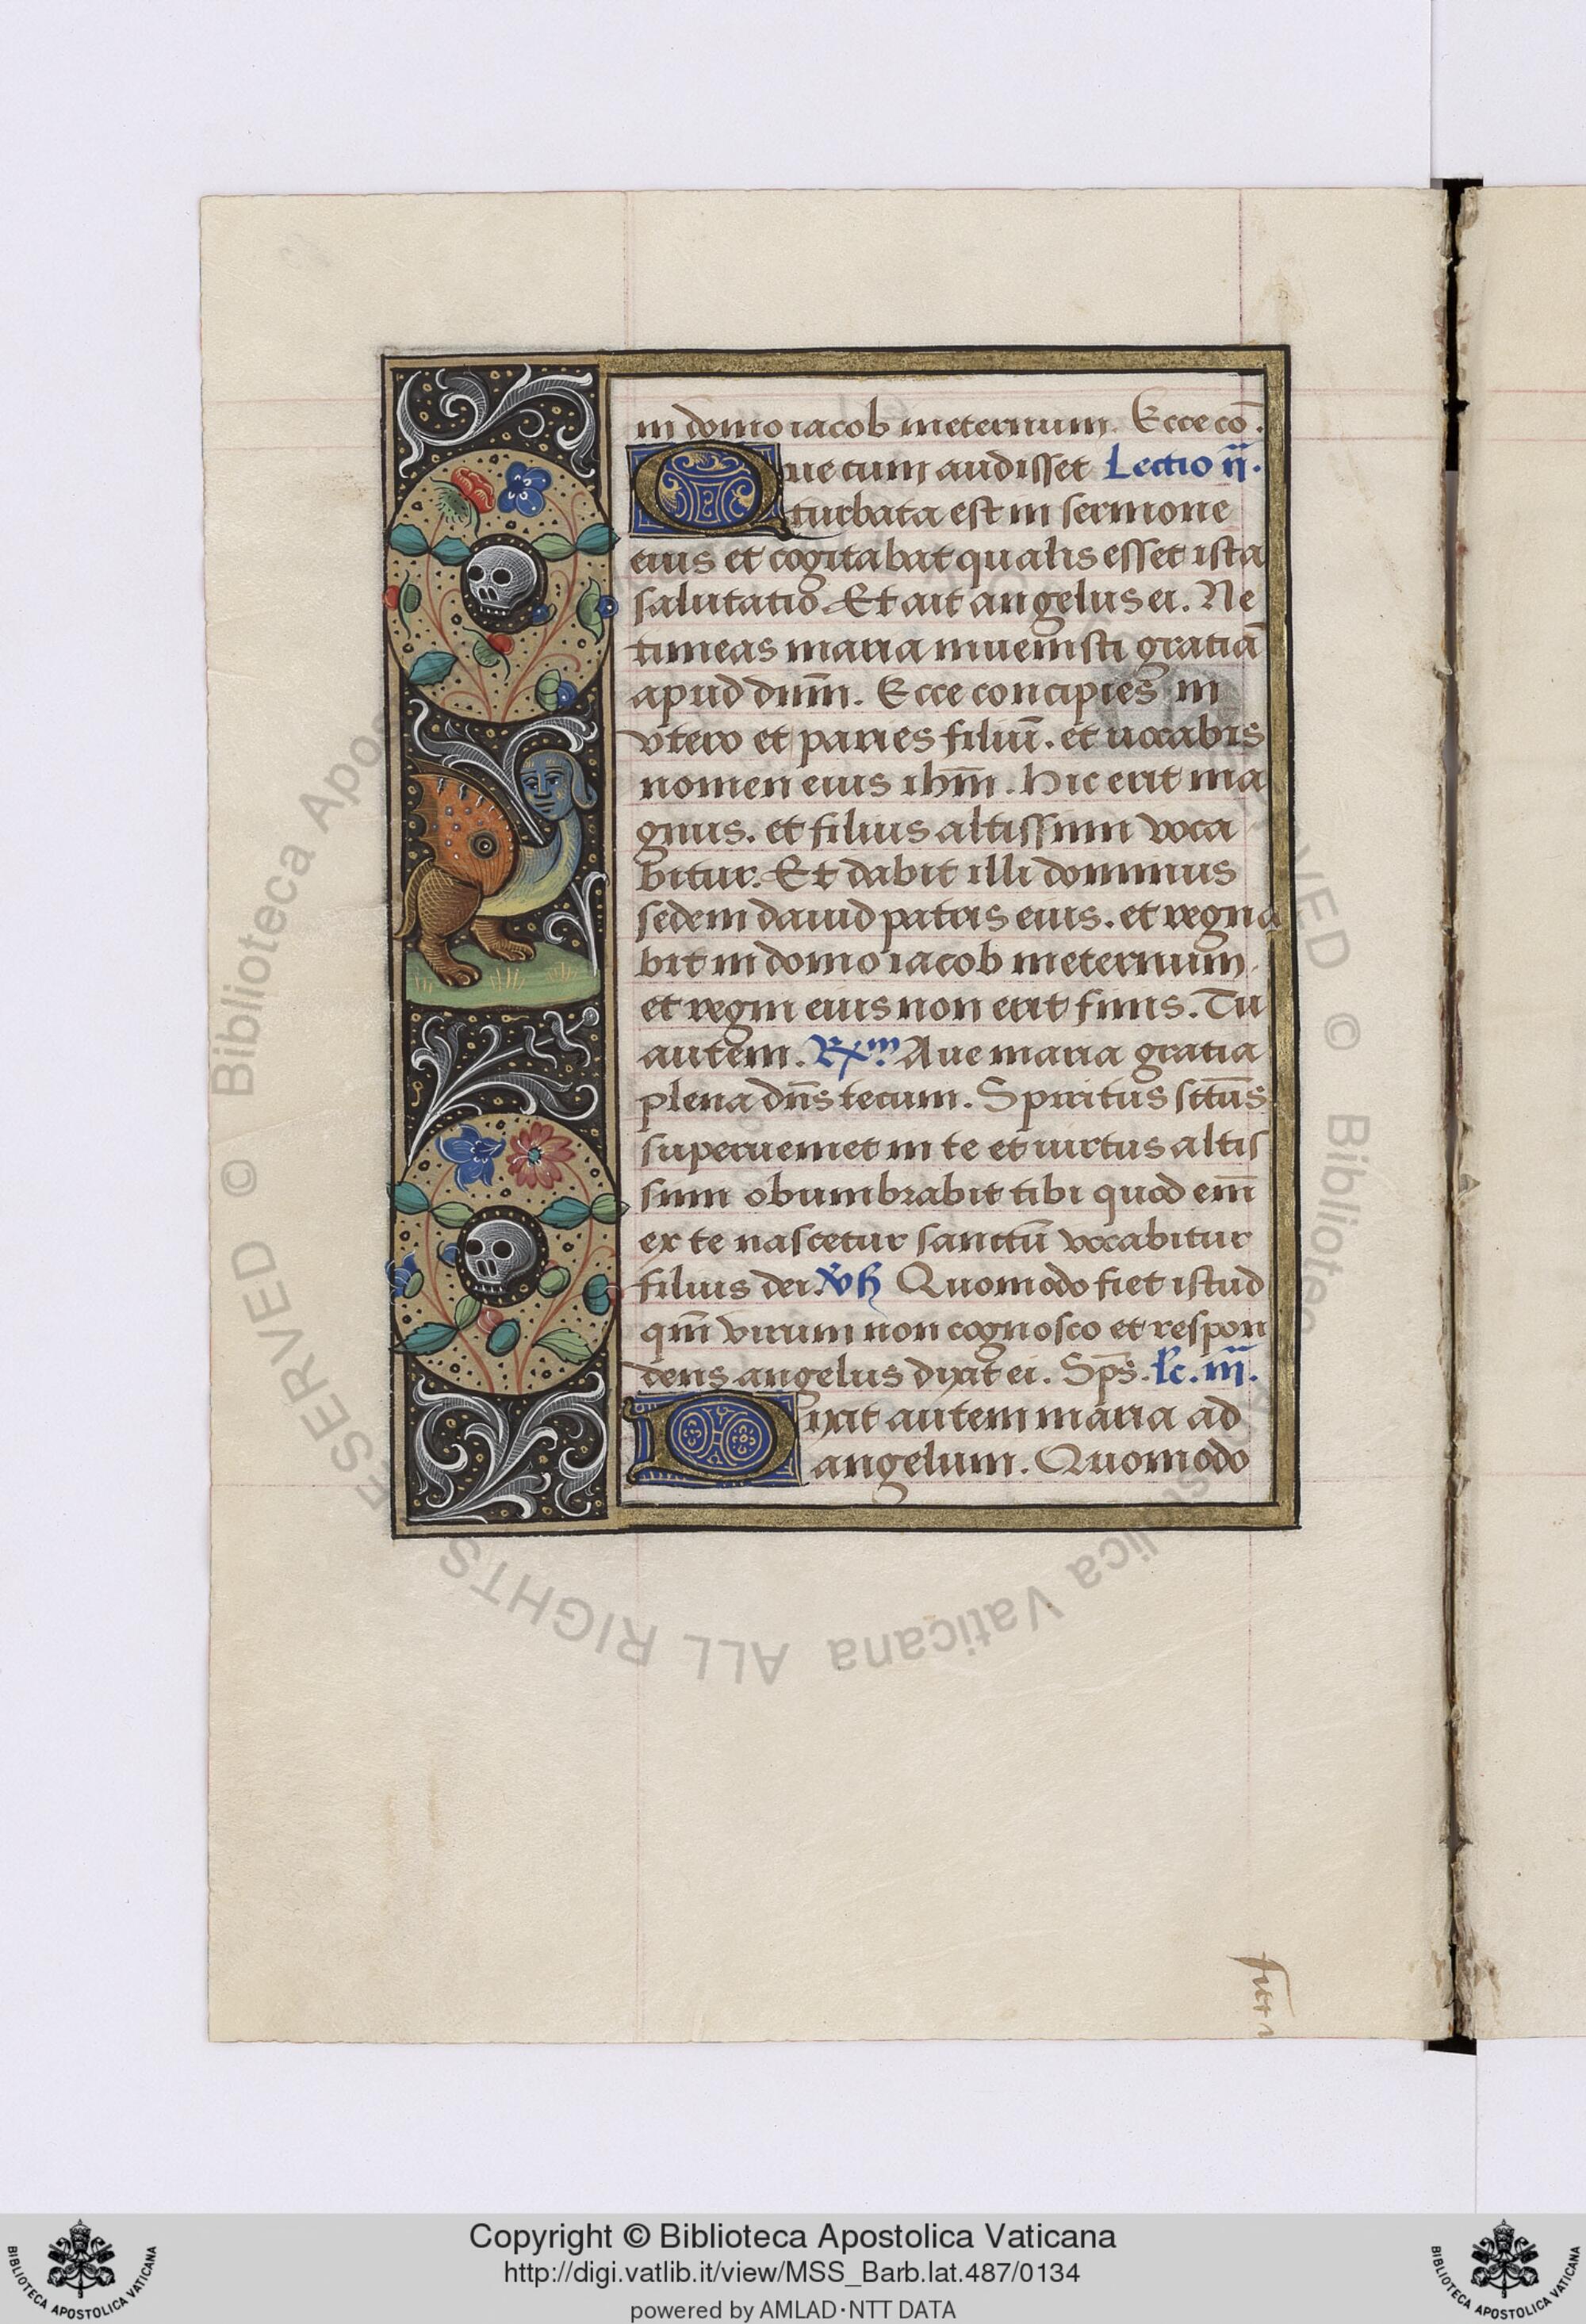 in domo iacob ineternum. Ecce cō.
Que cum audisset Lectio ıı.
turbata est in sermone
eius et cogitabat qualis esset ista
salutatio. Et ait angelus ei. Ne
timeas maria inuenisti gratiā
apud dnm̄. Ecce concipies in
vtero et paries filiū. et uocabis
nomen eius ihm̄. hic erit ma
gnus. et filius altissimi voca
bitur. Et dabit illi dominus
sedem dauid patris eius. et regna
bit in domo iacob ineternum.
et regni eius non erit finis. Tu
autem. Rxm. Aue maria gratia
plena dn̄s tecum. Spiritus sctūs
superueniet in te et uirtus altis
simi obumbrabit tibi quod em̄
ex te nascetur sanctū vocabitur
filius dei. v̄ß Quomodo fiet istud
qm̄ virum non cognosco et respon
dens angelus dixit ei. Sp̄s. lc. iii.
Dixit autem maria ad
angelum. Quomodo
© Biblioteca Apostolica Vaticana ALL RIGHTS RESERVED © Biblioteca Apostolica Vaticana ALL RIGHTS RESERVED
Copyright © Biblioteca Apostolica Vaticana
http://digi.vatlib.it/view/MSS_Barb.lat.487/0134
powered by AMLAD·NTT DATA
BIBLIOTECA APOSTOLICA VATICANA
BIBLIOTECA APOSTOLICA VATICANA